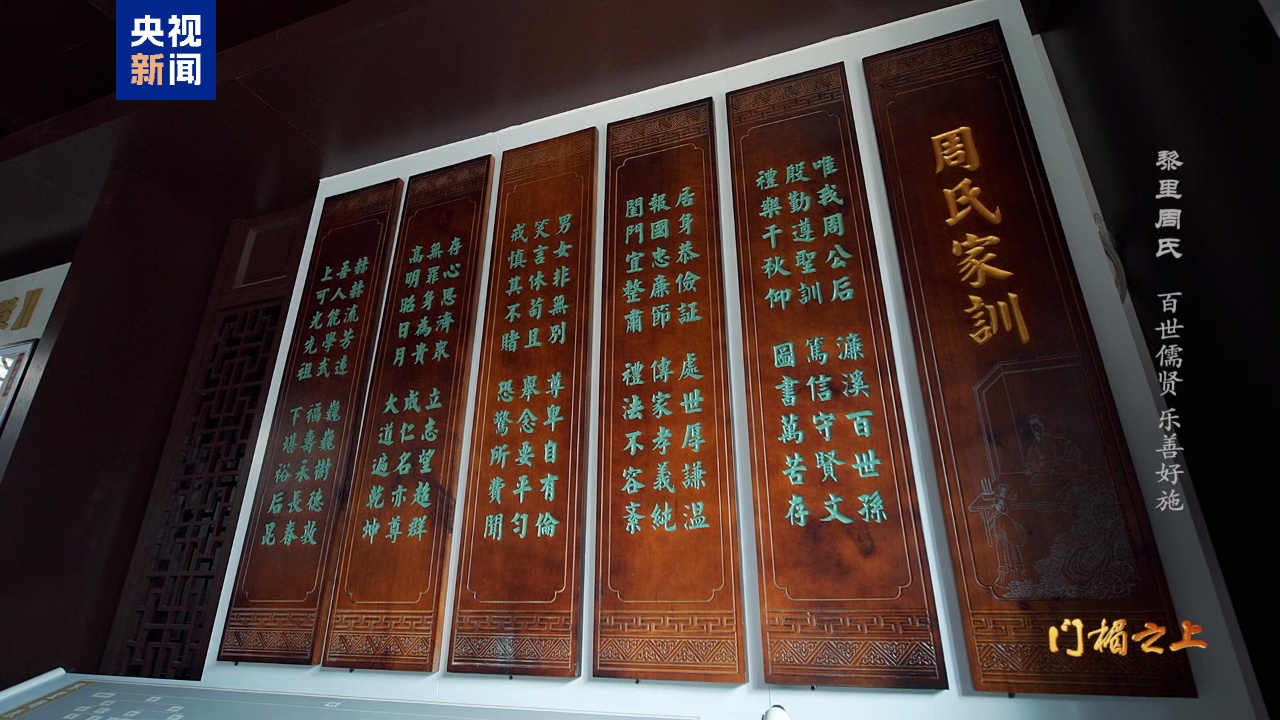 央视
新闻
周氏家訓
唯我周公后 濂溪百世孫
殷勤遵聖訓 篤信守賢文
禮樂千秋仰 圖書萬苦存
居身恭儉証 處世厚謙溫
報國忠廉節 傳家孝義純
閨門宜整肅 禮法不容紊
男女非無別 尊卑自有倫
笑言休苟且 舉念要平勻
戒慎其不賭 恐警所費聞
存心思濟衆 立志望超群
無罪身為貴 成仁名亦尊
高明昭日月 大道遍乾坤
赫赫流芳遠 巍巍樹德敦
吾人能學武 福壽永長春
上可光先祖 下堪裕后昆
黎里周氏 百世儒贤 乐善好施
门楣之上